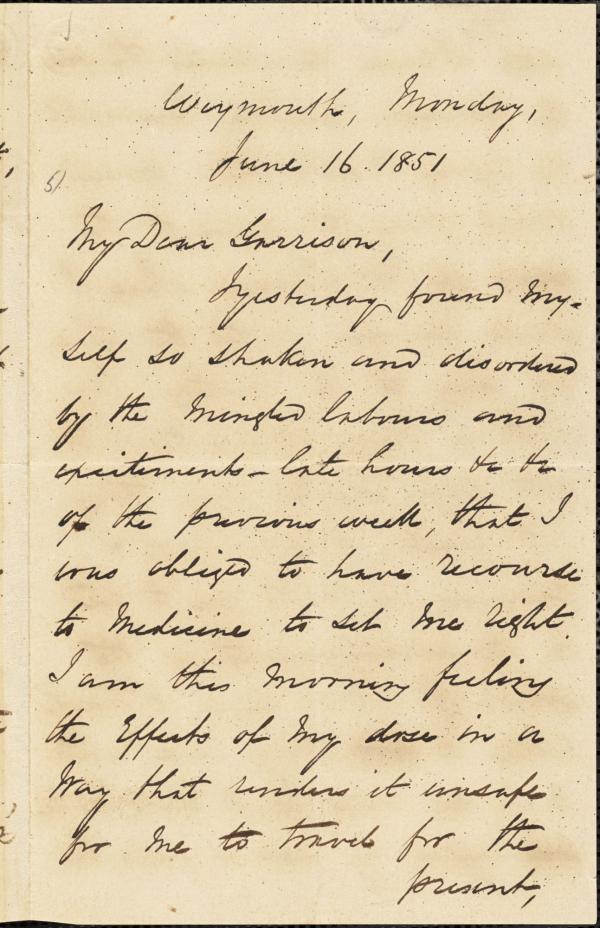 Weymouth, Monday,
June 16. 1851
5)
My Dear Garrison,
I yesterday found my-
self so shaken and disordered
by the mingled labours and
excitements - late hours &c &c
of the previous week, that I
was obliged to have recourse
to Medicine to set me right.
I am this morning feeling
the Effects of my dose in a
Way that renders it unsafe
for me to travel for the
present,